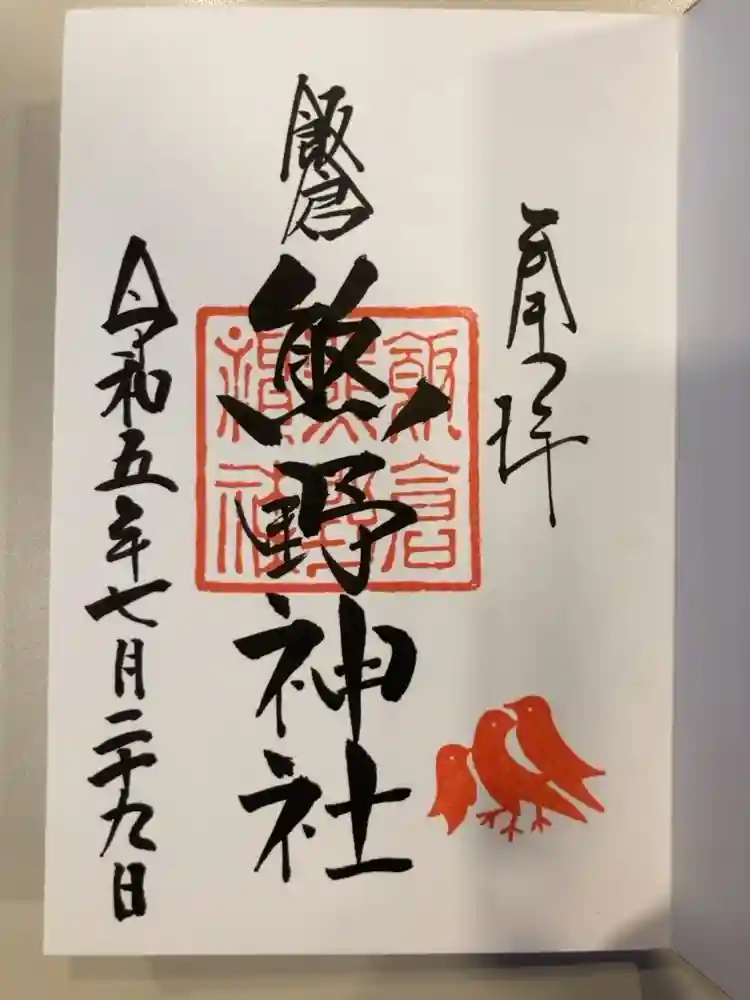 奉拝
飯倉
熊野神社
令和五年七月二十九日
飯倉
熊野